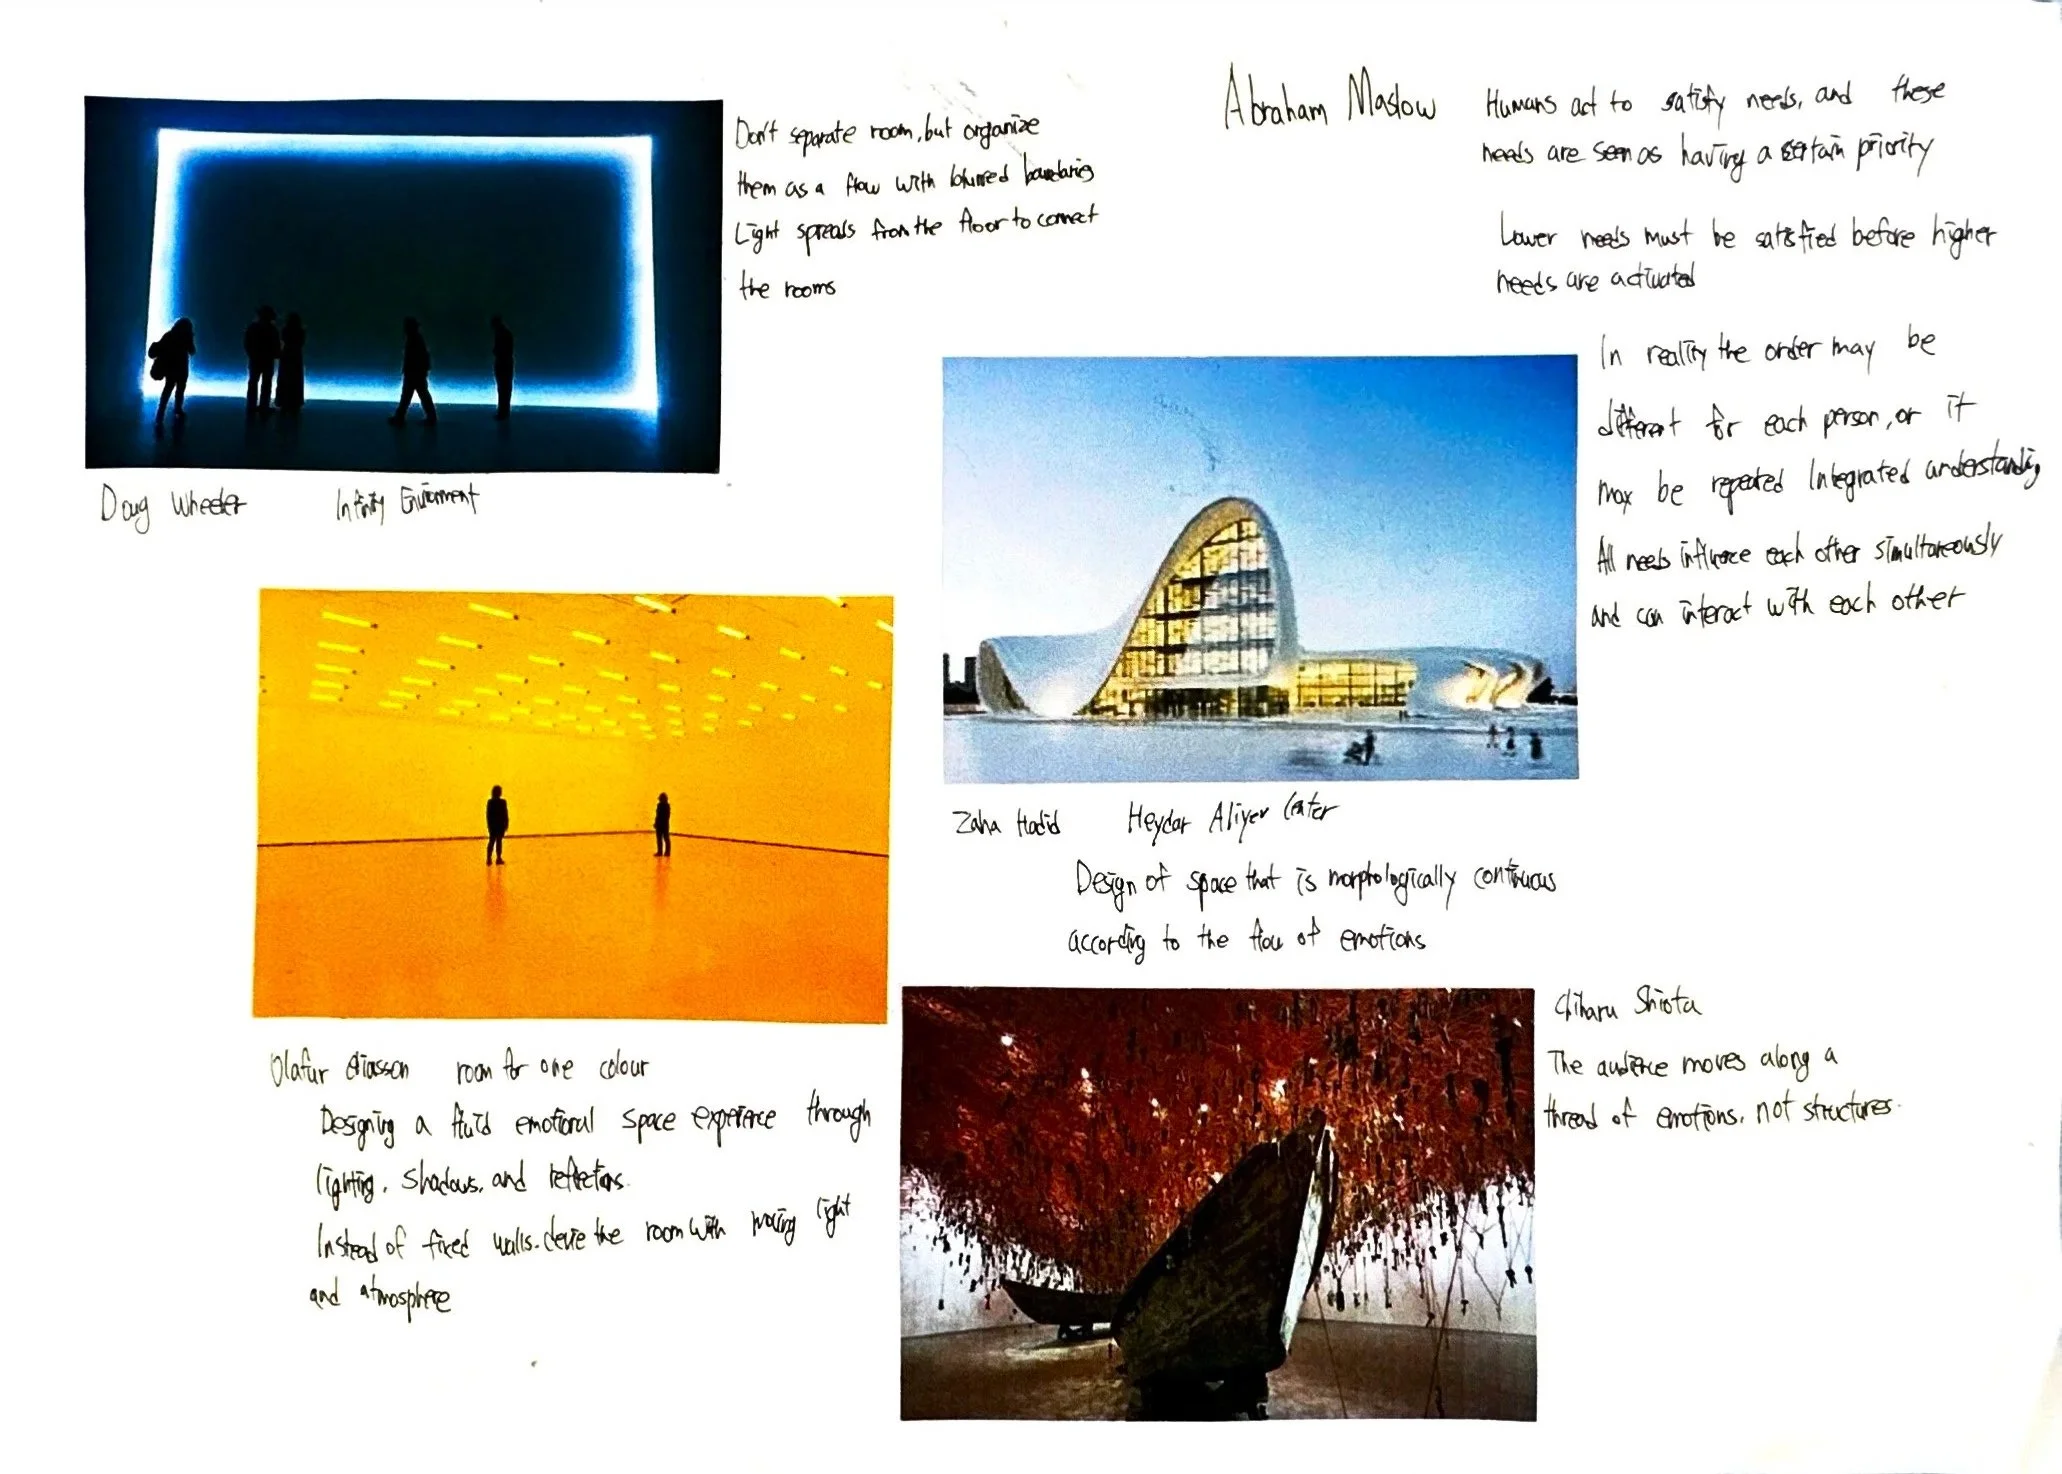 Don't separate room, but organize
them as a flow with blurred boundaries
Light spreads from the floor to connect
the rooms
Doug Wheeler Infinity Enviornment
Abraham Maslow
Humans act to satify needs, and these
needs are seen as having a certain priority
Lower needs must be satisfied before higher
needs are activated
In reality the order may be
different for each person, or it
may be repeated Integrated understanding
All needs influence each other simultaneously
and can interact with each other
Zaha Hadid Heydar Aliyev Center
Design of space that is morphologically continuous
according to the flow of emotions
Olafur eliasson room for one colour
Designing a fluid emotional space experience through
lighting, shadows, and reflections.
Instead of fixed walls. the room with moving light
and atmosphere
Chiharu Shiota
The audience moves along a
thread of emotions, not structures.